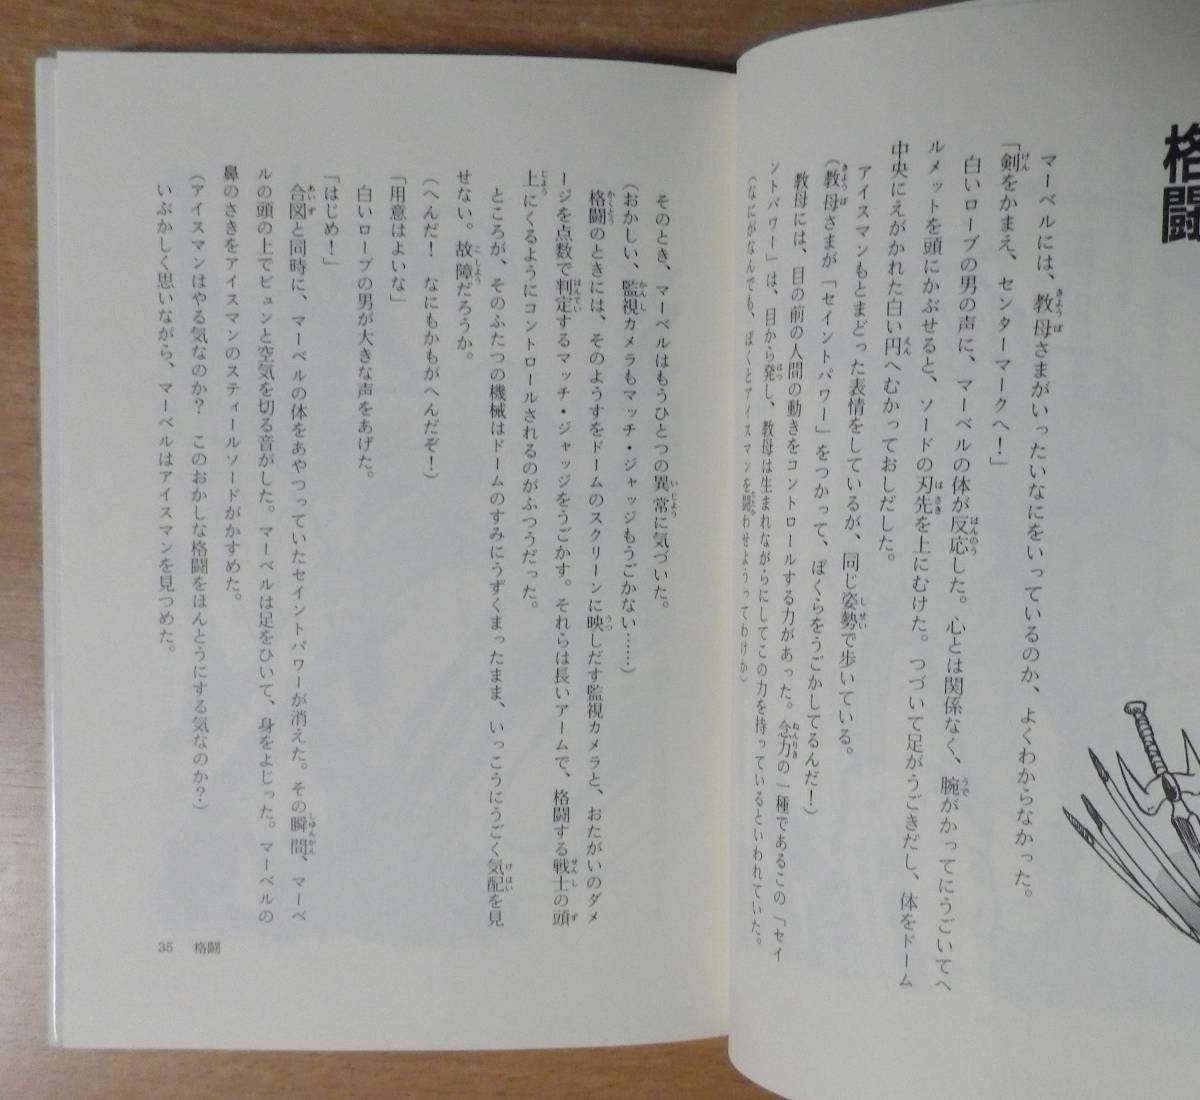 格闘
マーベルには、教母さまがいったいなにをいっているのか、よくわからなかった。
「剣をかまえ、センターマークへ！」
白いローブの男の声に、マーベルの体が反応した。心とは関係なく、腕がかってにうごいてヘ
ルメットを頭にかぶせると、ソードの刃先を上にむけた。つづいて足がうごきだし、体をドーム
中央にえがかれた白い円へむかっておしだした。
アイスマンもとまどった表情をしているが、同じ姿勢で歩いている。
（教母さまが「セイントパワー」をつかって、ぼくらをうごかしてるんだ！）
教母には、目の前の人間の動きをコントロールする力があった。念力の一種であるこの「セイ
ントパワー」は、目から発し、教母は生まれながらにしてこの力を持っているといわれていた。
（なにがなんでも、ぼくとアイスマンを闘わせようってわけか）
そのとき、マーベルはもうひとつの異常に気づいた。
（おかしい、監視カメラもマッチ・ジャッジもうごかない……）
格闘のときには、そのようすをドームのスクリーンに映しだす監視カメラと、おたがいのダメ
ージを点数で判定するマッチ・ジャッジをうごかす。それらは長いアームで、格闘する戦士の頭
上にくるようにコントロールされるのがふつうだった。
ところが、そのふたつの機械はドームのすみにうずくまったまま、いっこうにうごく気配を見
せない。故障だろうか。
（へんだ！　なにもかもがへんだぞ！）
「用意はよいな」
白いローブの男が大きな声をあげた。
「はじめ！」
合図と同時に、マーベルの体をあやつっていたセイントパワーが消えた。その瞬間、マーベ
ルの頭の上でビュンと空気を切る音がした。マーベルは足をひいて、身をよじった。マーベルの
鼻のさきをアイスマンのスティールソードがかすめた。
（アイスマンはやる気なのか？　このおかしな格闘をほんとうにする気なのか？）
いぶかしく思いながら、マーベルはアイスマンを見つめた。
35 格闘